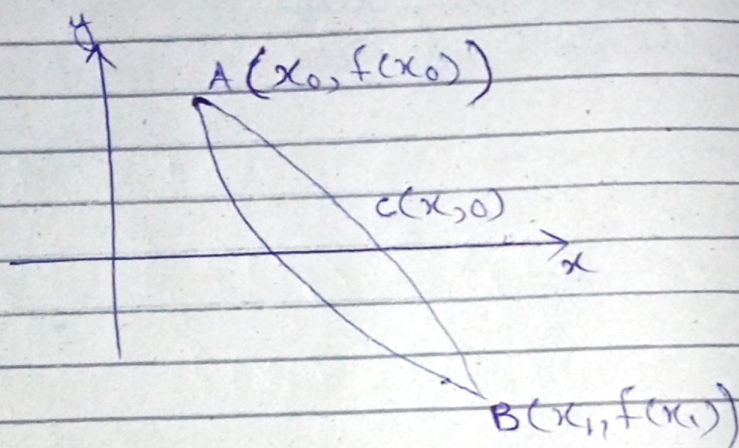 y
A(x₀, f(x₀))
c(x,0)
x
B(x₁, f(x₁))